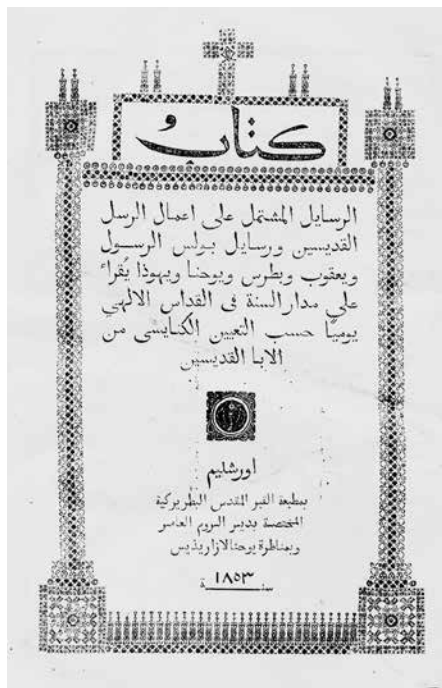 كتاب
الرسايل المشتمل على اعمال الرسل
القديسين ورسايل بولس الرسول
ويعقوب وبطرس ويوحنا ويهوذا يُقراءُ
على مدار السنة فى القداس الالهي
يوميًا حسب التعيين الكنايسى من
الابا القديسين
اورشليم
بمطبعة القبر المقدس البطريركية
المختصة بدير الروم العامر
وبمناظرة يوحنا لازاريذيس
سنة ١٨٥٣